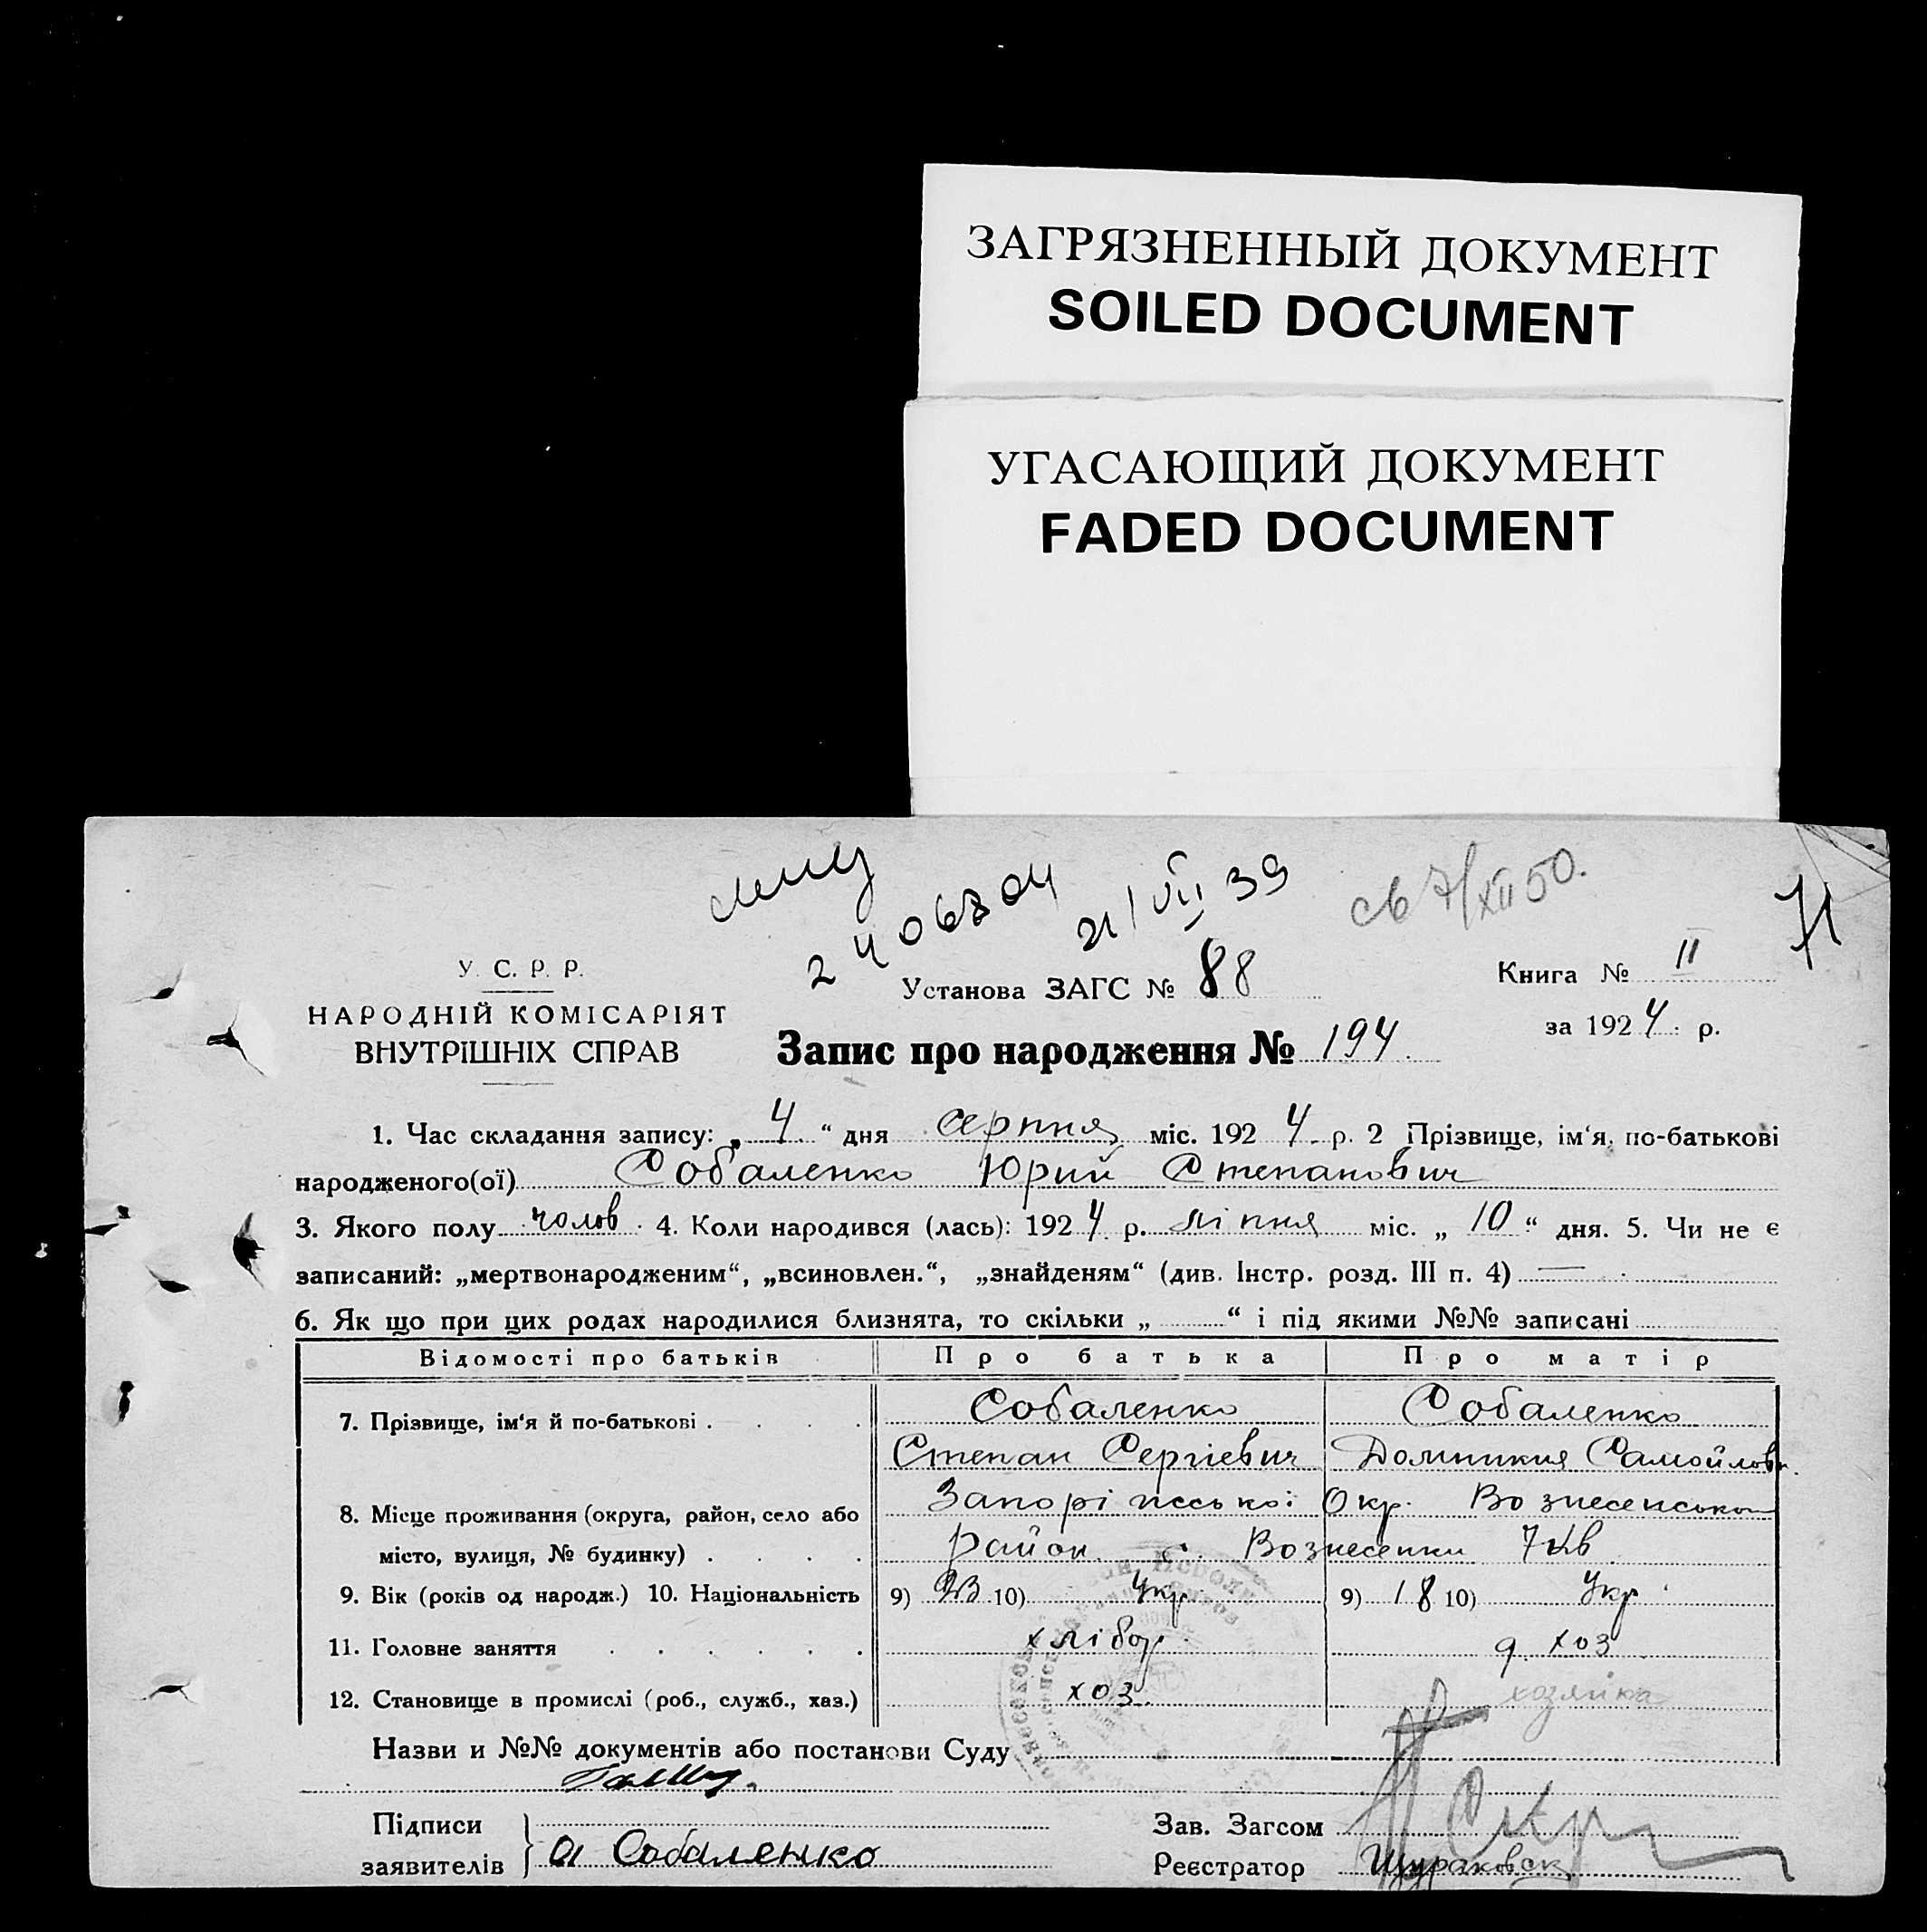 ЗАГРЯЗНЕННЫЙ ДОКУМЕНТ
SOILED DOCUMENT
УГАСАЮЩИЙ ДОКУМЕНТ
FADED DOCUMENT
21/VII 39
св 7/XII 50.
71
У. С. Р. Р.
НАРОДНІЙ КОМІСАРІЯТ
ВНУТРІШНІХ СПРАВ
Установа ЗАГС № 88
Книга № II
за 1924 р.
Запис про народження № 194.
1. Час складання запису: „ 4 “ дня серпня міс. 192 4 р. 2 Прізвище, ім‘я, по-батькові
народженого(ої) Собаленко Юрий Степанович
3. Якого полу чолов. 4. Коли народився (лась): 1924 р. ліпня міс. „ 10 “ дня. 5. Чи не є
записаний: „мертвонародженим“, „всиновлен.“, „знайденям“ (див. Інстр. розд. III п. 4) —
6. Як що при цих родах народилися близнята, то скільки „ “ і під якими №№ записані
Відомості про батьків Про батька Про матір
7. Прізвище, ім‘я й по-батькові . . . . Собаленко Собаленко
Степан Сергіевич Доминикия Самойловн.
8. Місце проживання (округа, район, село або Запоріжської Окр. Вознесенського
місто, вулиця, № будинку) . . . . район. с. Вознесенки
9. Вік (років од народж.) 10. Національність 9) 23 10) Укр. 9) 18 10) Укр.
11. Головне заняття . . . . . . хлібор. д. хоз
12. Становище в промислі (роб., служб., хаз.) хоз. хозяйка
Назви и №№ документів або постанови Суду
Підписи
заявителів } Собаленко
Зав. Загсом
Реєстратор Щураковск